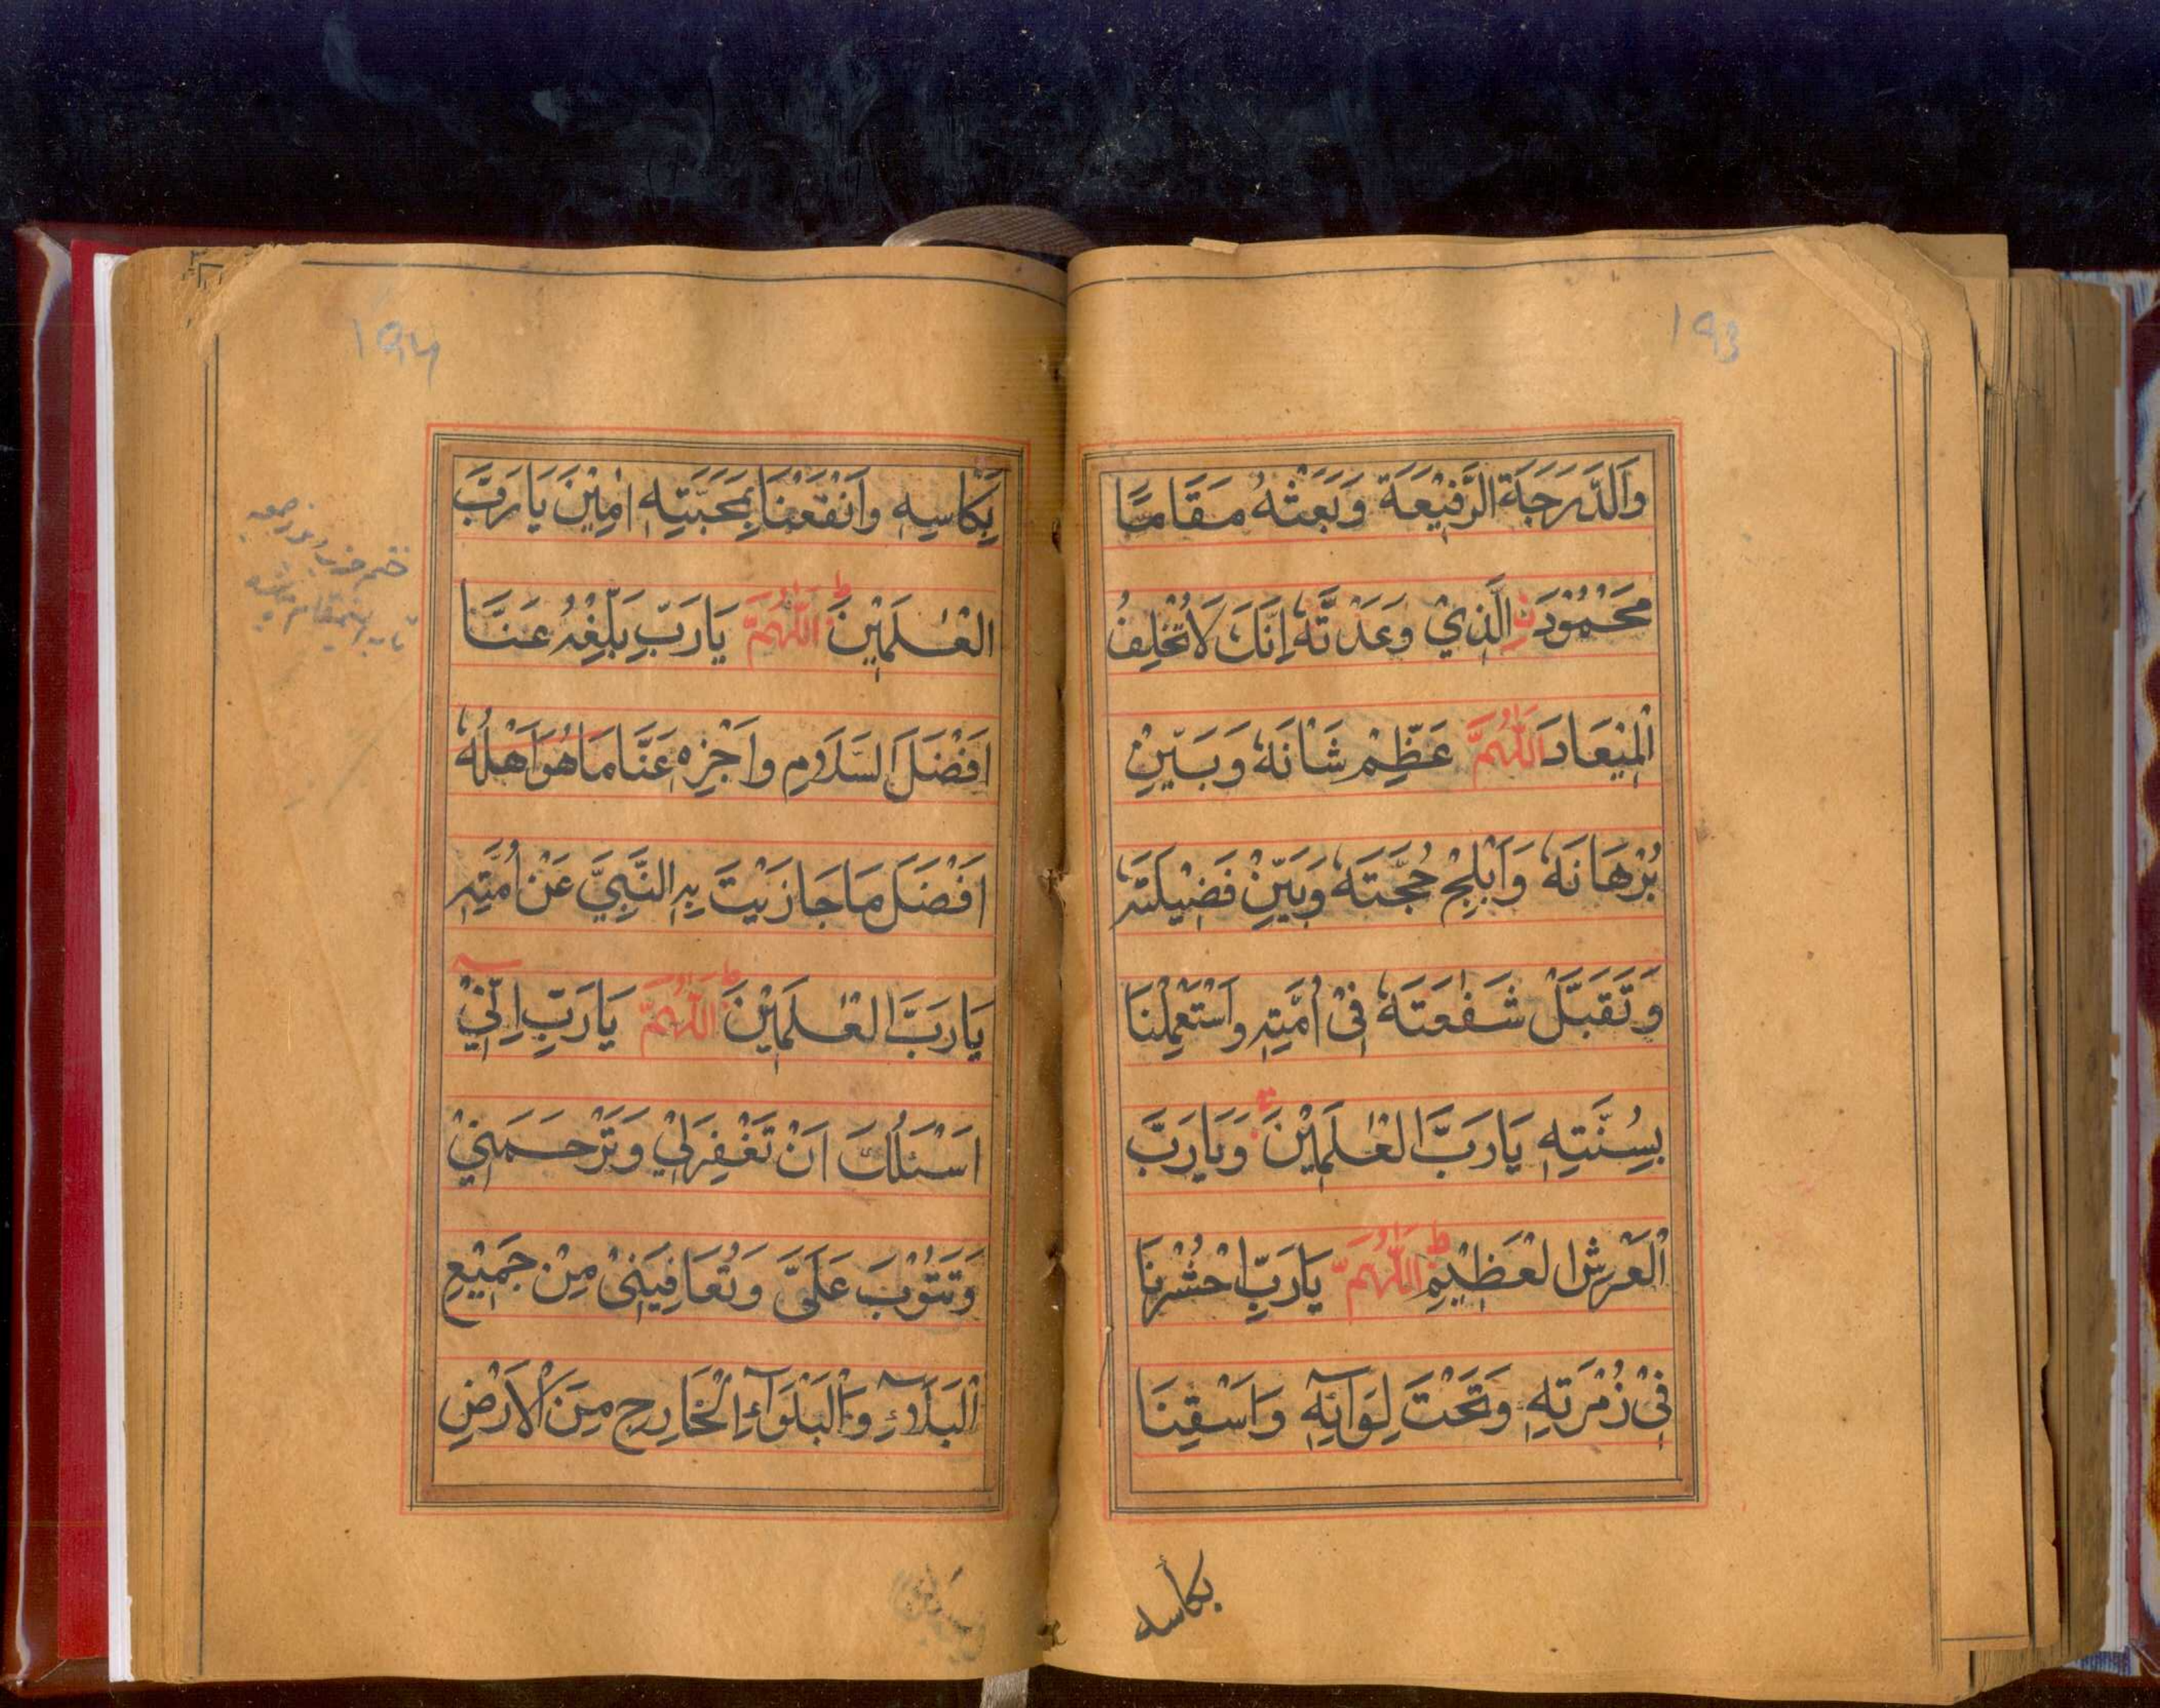 193
وَالدَّرَجَةَ الرَّفِيْعَةَ وَبَعَثْهُ مَقَامًا
مَحْمُوْدَنِ الَّذِيْ وَعَدْتَّهٗ اِنَّكَ لَا تُخْلِفُ
الْمِيْعَادَ اَللّٰهُمَّ عَظِّمْ شَانَهٗ وَبَيِّنْ
بُرْهَانَهٗ وَاَبْلِجْ حُجَّتَهٗ وَبَيِّنْ فَضِيْلَتَهٗ
وَتَقَبَّلْ شَفٰعَتَهٗ فِيْ اُمَّتِهٖ وَاسْتَعْمِلْنَا
بِسُنَّتِهٖ يَارَبَّ الْعٰلَمِيْنَ وَيَارَبَّ
الْعَرْشِ الْعَظِيْمِ ط اَللّٰهُمَّ يَارَبِّ احْشُرْنَا
فِيْ زُمْرَتِهٖ وَتَحْتَ لِوَآئِهٖ وَاَسْقِنَا
بكأسه
194
بِكَاسِهٖ وَانْفَعْنَا بِمَحَبَّتِهٖ اٰمِيْنَ يَارَبَّ
الْعٰلَمِيْنَ ط اَللّٰهُمَّ يَارَبِّ بَلِّغْهُ عَنَّا
اَفْضَلَ السَّلَامِ وَاَجْزِهٖ عَنَّا مَا هُوَ اَهْلُهٗ
اَفْضَلَ مَا جَازَيْتَ بِهِ النَّبِيَّ عَنْ اُمَّتِهٖ
يَارَبَّ الْعٰلَمِيْنَ ط اَللّٰهُمَّ يَارَبِّ اِنِّيْ
اَسْئَلُكَ اَنْ تَغْفِرَلِيْ وَتَرْحَمَنِيْ
وَتَتُوْبَ عَلَيَّ وَتُعَافِيَنِيْ مِنْ جَمِيْعِ
الْبَلَآءِ وَالْبَلْوَآءِ الْخَارِجِ مِنَ الْاَرْضِ